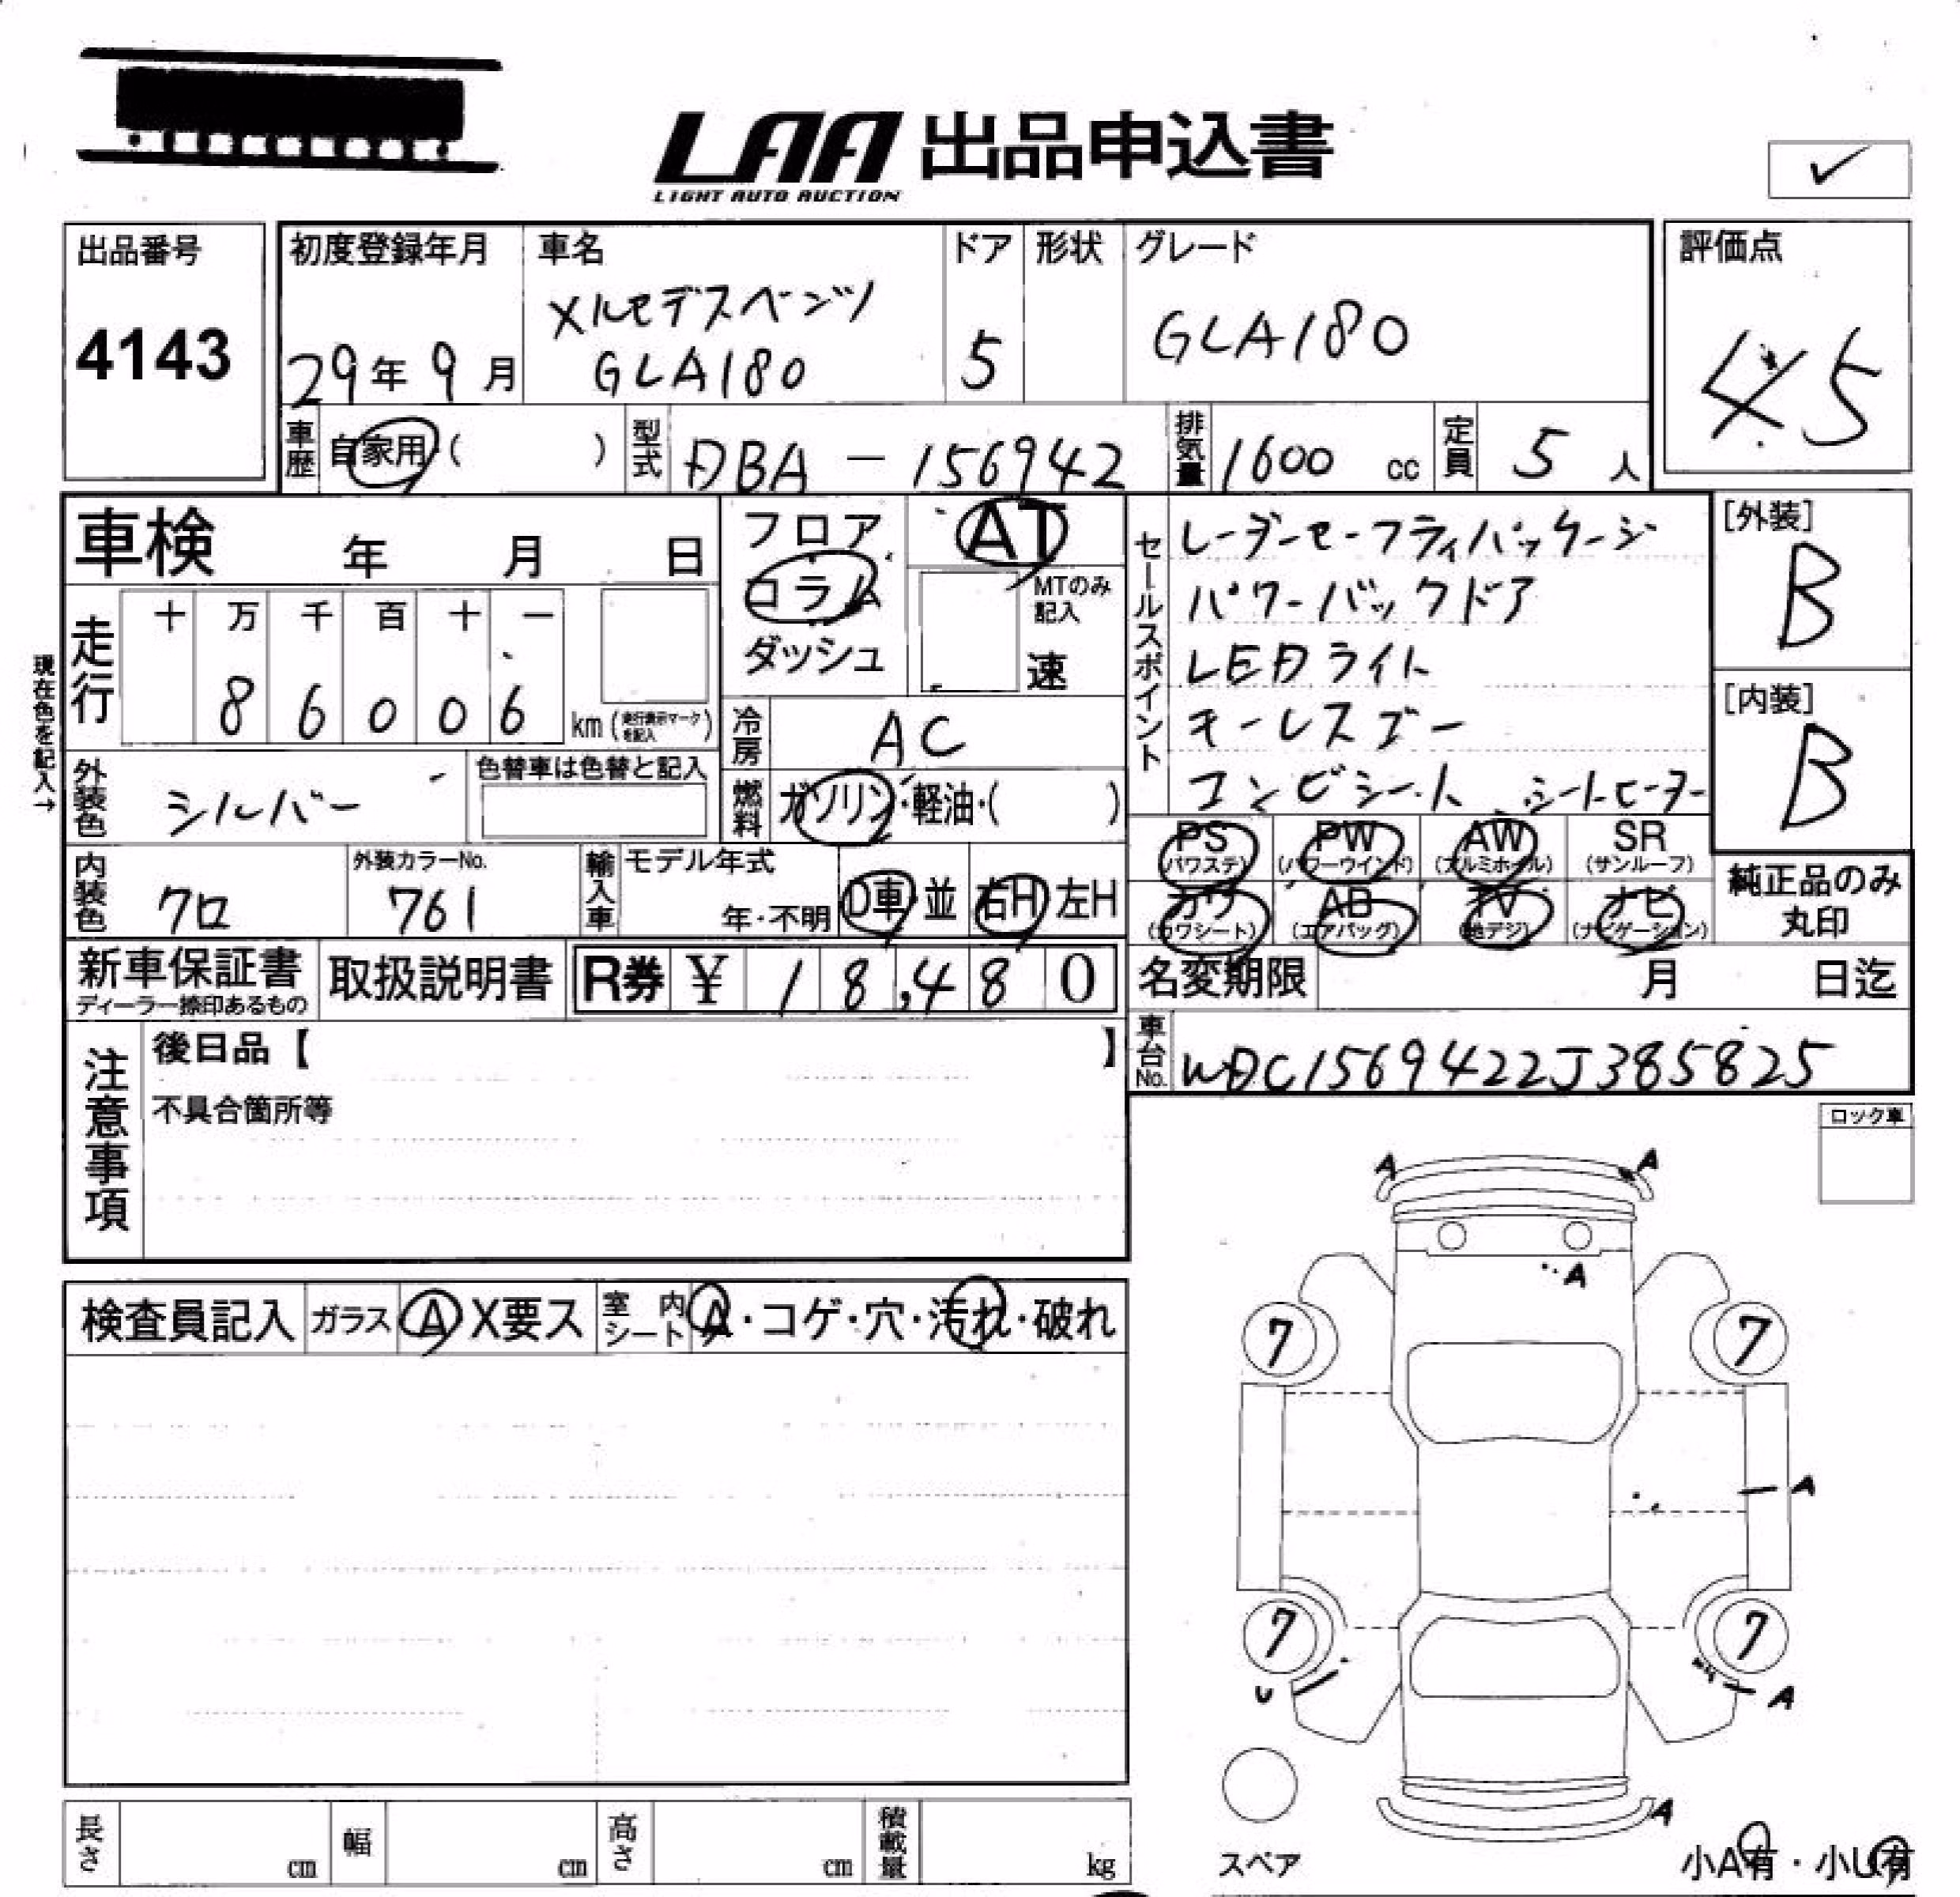 LAA 出品申込書
LIGHT AUTO AUCTION
✓
出品番号
4143
初度登録年月
29年 9月
車名
メルセデスベンツ
GLA180
ドア
5
形状
グレード
GLA180
評価点
4.5
車歴 自家用 ( )
型式 DBA - 156942
排気量 1600 cc
定員 5 人
車検 年 月 日
フロア
コラム
ダッシュ
AT
MTのみ
記入
速
現在色を記入→
走行
十 万 千 百 十 一
8 6 0 0 6
km (走行表示マークを記入)
冷房 AC
外装色 シルバー
色替車は色替と記入
燃料 ガソリン・軽油・( )
内装色 クロ
外装カラーNo.
761
輸入車
モデル年式
年・不明
D車・並
右H 左H
セールスポイント
レーダーセーフティパッケージ
パワーバックドア
LEDライト
キーレスゴー
コンビシート シートヒーター
[外装]
B
[内装]
B
PS
(パワステ)
PW
(パワーウインド)
AW
(アルミホイール)
SR
(サンルーフ)
カワ
(カワシート)
AB
(エアバッグ)
TV
(地デジ)
ナビ
(ナビゲーション)
純正品のみ
丸印
新車保証書
ディーラー捺印あるもの
取扱説明書
R券 ¥ 18,480
名変期限 月 日迄
車台No. WDC1569422J385825
注意事項
後日品【 】
不具合箇所等
ロック車
検査員記入 ガラス A X要ス
室内シート A・コゲ・穴・汚れ・破れ
A A
A
7 7
A
7 7
U A
A
スペア
小A有・小U有
長さ cm
幅 cm
高さ cm
積載量 kg